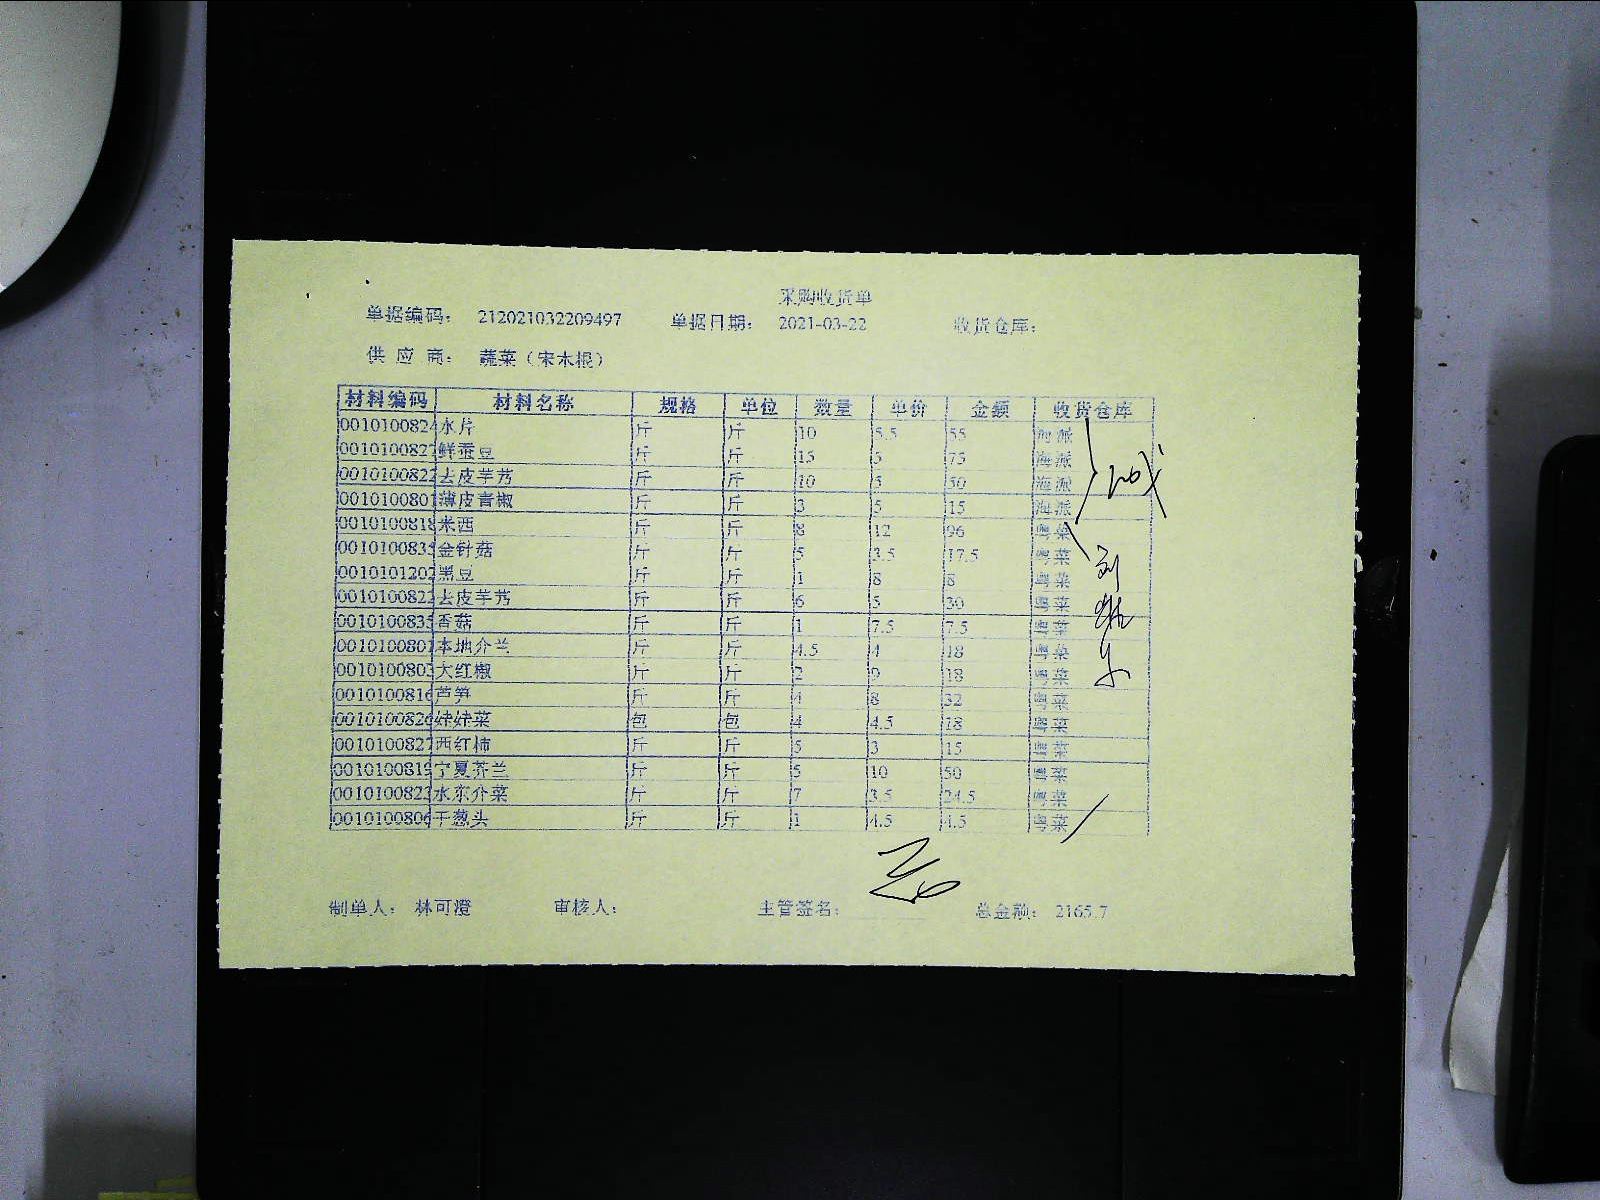 采购收货单
单据编码： 212021032209497 单据日期： 2021-03-22 收货仓库：
供 应 商： 蔬菜（宋本根）
材料编码 材料名称 规格 单位 数量 单价 金额 收货仓库
0010100824 水片 斤 斤 10 5.5 55 海派
0010100827 鲜蚕豆 斤 斤 15 5 75 海派
0010100822 去皮芋艿 斤 斤 10 5 50 海派
0010100801 薄皮青椒 斤 斤 3 5 15 海派
0010100818 米西 斤 斤 8 12 96 粤菜
0010100835 金针菇 斤 斤 5 3.5 17.5 粤菜
0010101202 黑豆 斤 斤 1 8 8 粤菜
0010100822 去皮芋艿 斤 斤 6 5 30 粤菜
0010100835 香菇 斤 斤 1 7.5 7.5 粤菜
0010100801 本地介兰 斤 斤 4.5 4 18 粤菜
0010100803 大红椒 斤 斤 2 9 18 粤菜
0010100816 芦笋 斤 斤 4 8 32 粤菜
0010100826 娃娃菜 包 包 4 4.5 18 粤菜
0010100827 西红柿 斤 斤 5 3 15 粤菜
0010100819 宁夏芥兰 斤 斤 5 10 50 粤菜
0010100823 水东介菜 斤 斤 7 3.5 24.5 粤菜
0010100806 干葱头 斤 斤 1 4.5 4.5 粤菜
制单人： 林可澄 审核人： 主管签名： 总金额： 2165.7